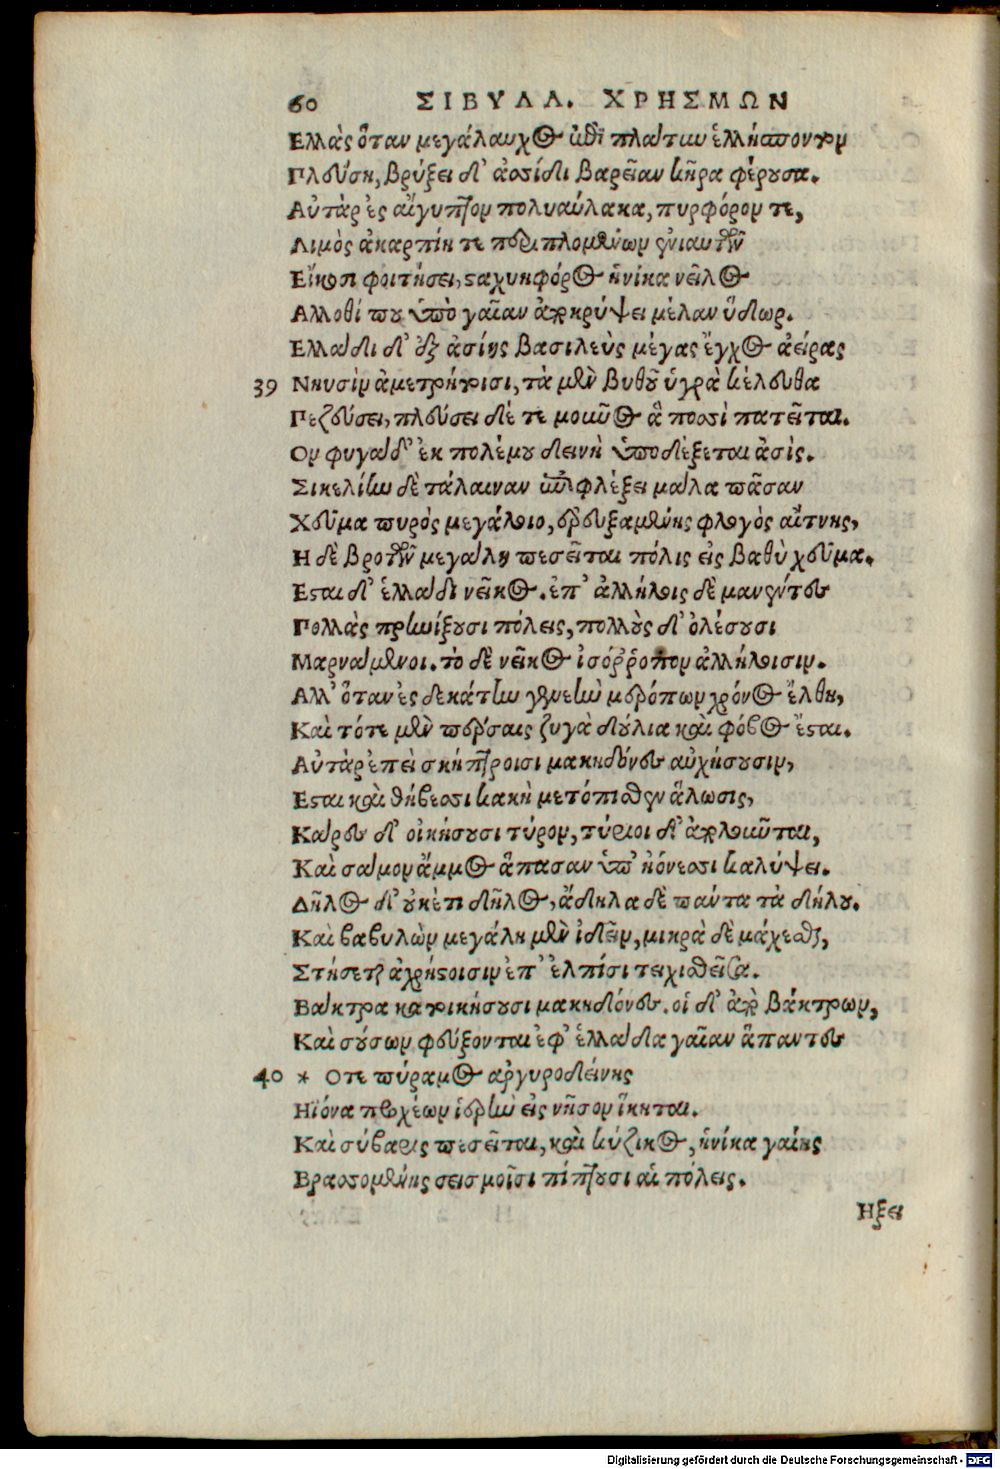 60 ΣΙΒΥΛΛ. ΧΡΗΣΜΩΝ
Ελλὰς ὅταν μεγάλαυχος ἐπὶ πλατὺν ἑλλήσποντον
Πλεύσῃ, βρύξει δ' ἀσίδι βαρεῖαν κῆρα φέρουσα.
Αὐτὰρ ἐς αἴγυπτον πολυαύλακα, πυρφόρον τε,
Λιμὸς ἀκαρπίη τε περιπλομένων ἐνιαυτῶν
Εἴκοσι φοιτήσει, σταχυηφόρος ἡνίκα νεῖλος
Αλλοθί που ὑπὸ γαῖαν ἀποκρύψει μέλαν ὕδωρ.
Ελλάδι δ' ἐξ ἀσίης βασιλεὺς μέγας ἔγχος ἀείρας
39 Νηυσὶν ἀμετρήτοισι, τὰ μὲν βυθοῦ ὑγρὰ κέλευθα
Πεζεύσει, πλεύσει δέ τε μοιῶος ἃ ποσὶ πατεῖται.
Ον φυγάδ' ἐκ πολέμου δεινὴ ὑποδέξεται ἀσὶς.
Σικελίην δὲ τάλαιναν ἐπιφλέξει μάλα πᾶσαν
Χεῦμα πυρὸς μεγάλοιο, ἐρευξαμένης φλογὸς αἴτνης,
Η δὲ βροτῶν μεγάλη πεσεῖται πόλις εἰς βαθὺ χεῦμα.
Εσται δ' ἑλλάδι νεῖκος. ἐπ' ἀλλήλοις δὲ μανέντες
Πολλὰς πρηνίξουσι πόλεις, πολλοὺς δ' ὀλέσουσι
Μαρνάμενοι. τὸ δὲ νεῖκος ἰσόῤῥοπον ἀλλήλοισιν.
Αλλ' ὅταν ἐς δεκάτην γενεὴν μερόπων χρόνος ἔλθῃ,
Καὶ τότε μὲν πέρσαις ζυγὰ δούλια καὶ φόβος ἔσται.
Αὐτὰρ ἐπεὶ σκήπτροισι μακηδόνες αὐχήσουσιν,
Εσται καὶ θήβεσι κακὴ μετόπισθεν ἅλωσις,
Κᾶρες δ' οἰκήσουσι τύρον, τύριοι δ' ἀπολοῦνται,
Καὶ σάμον ἄμμος ἅπασαν ὑπ' ἠόνεσι καλύψει.
Δῆλος δ' οὐκέτι δῆλος, ἄδηλα δὲ πάντα τὰ δήλου.
Καὶ βαβυλὼν μεγάλη μὲν ἰδεῖν, μικρὰ δὲ μάχεσθαι,
Στήσεται ἀχρήστοισιν ἐπ' ἐλπίσι τειχισθεῖσα.
Βάκτρα κατοικήσουσι μακηδόνες. οἱ δ' ἀπὸ βάκτρων,
Καὶ σούσων φεύξονται ἐφ' ἑλλάδα γαῖαν ἅπαντες
40 * Οτε πύραμος ἀργυροδίνης
Ηϊόνα προχέων ἱερὴν εἰς νῆσον ἵκηται.
Καὶ σύβαρις πεσεῖται, καὶ κύζικος, ἡνίκα γαίης
Βρασσομένης σεισμοῖσι πίπτουσι αἱ πόλεις.
Ηξει
Digitalisierung gefördert durch die Deutsche Forschungsgemeinschaft - DFG